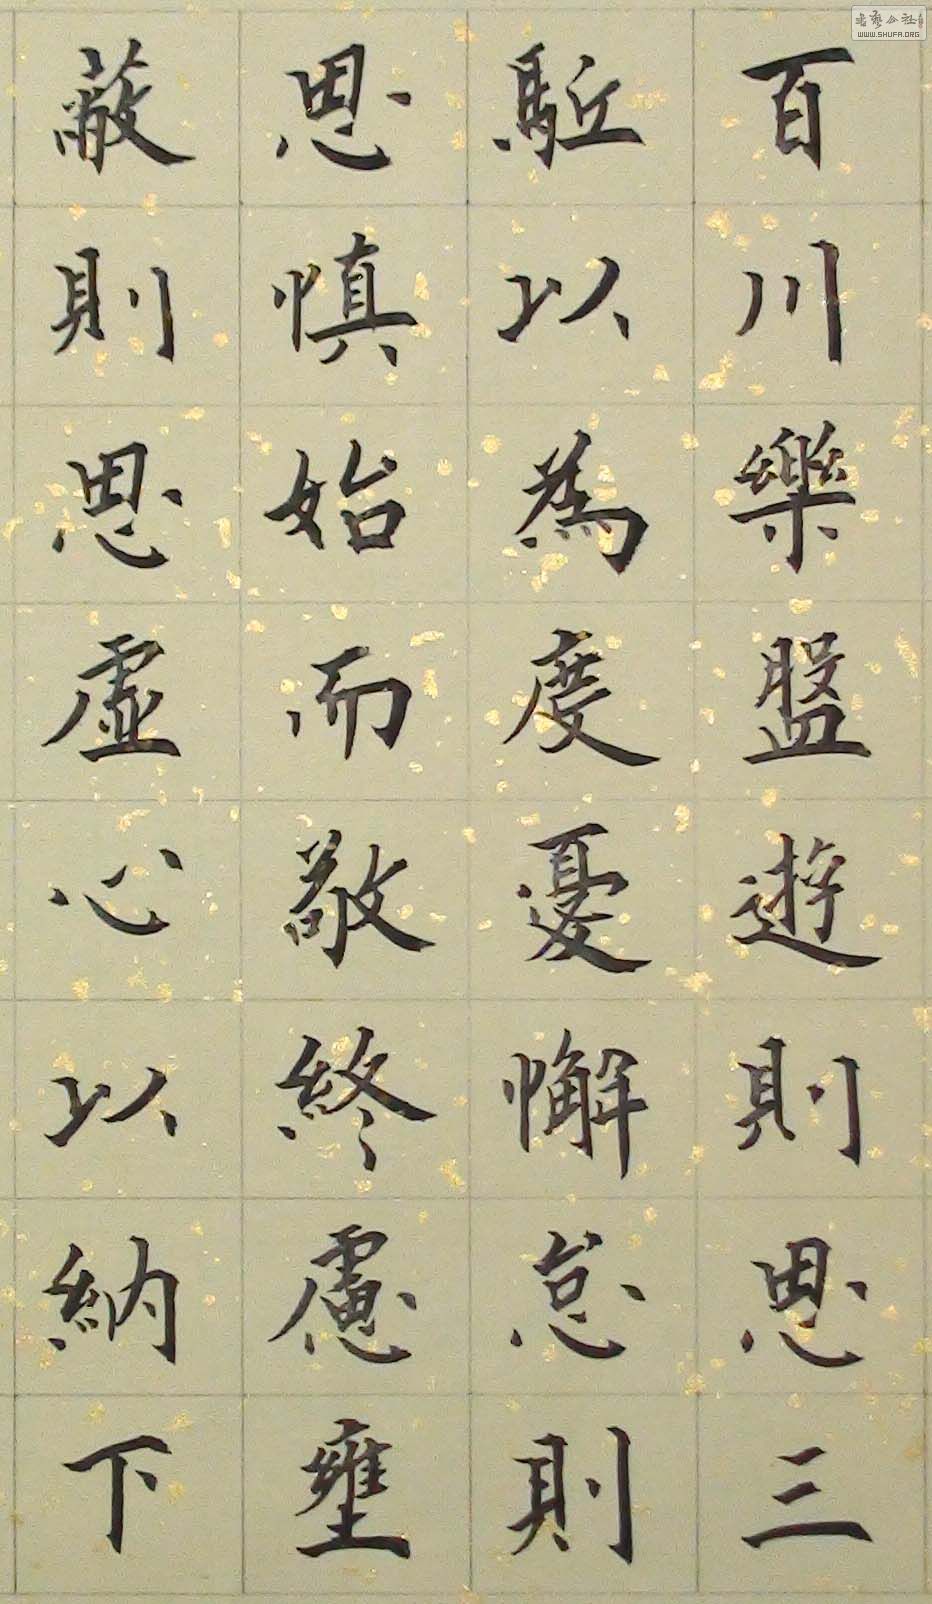 百川樂盤遊則思三
駈以為度憂懈怠則
思慎始而敬終慮壅
蔽則思虛心以納下
書藝公社
WWW.SHUFA.ORG